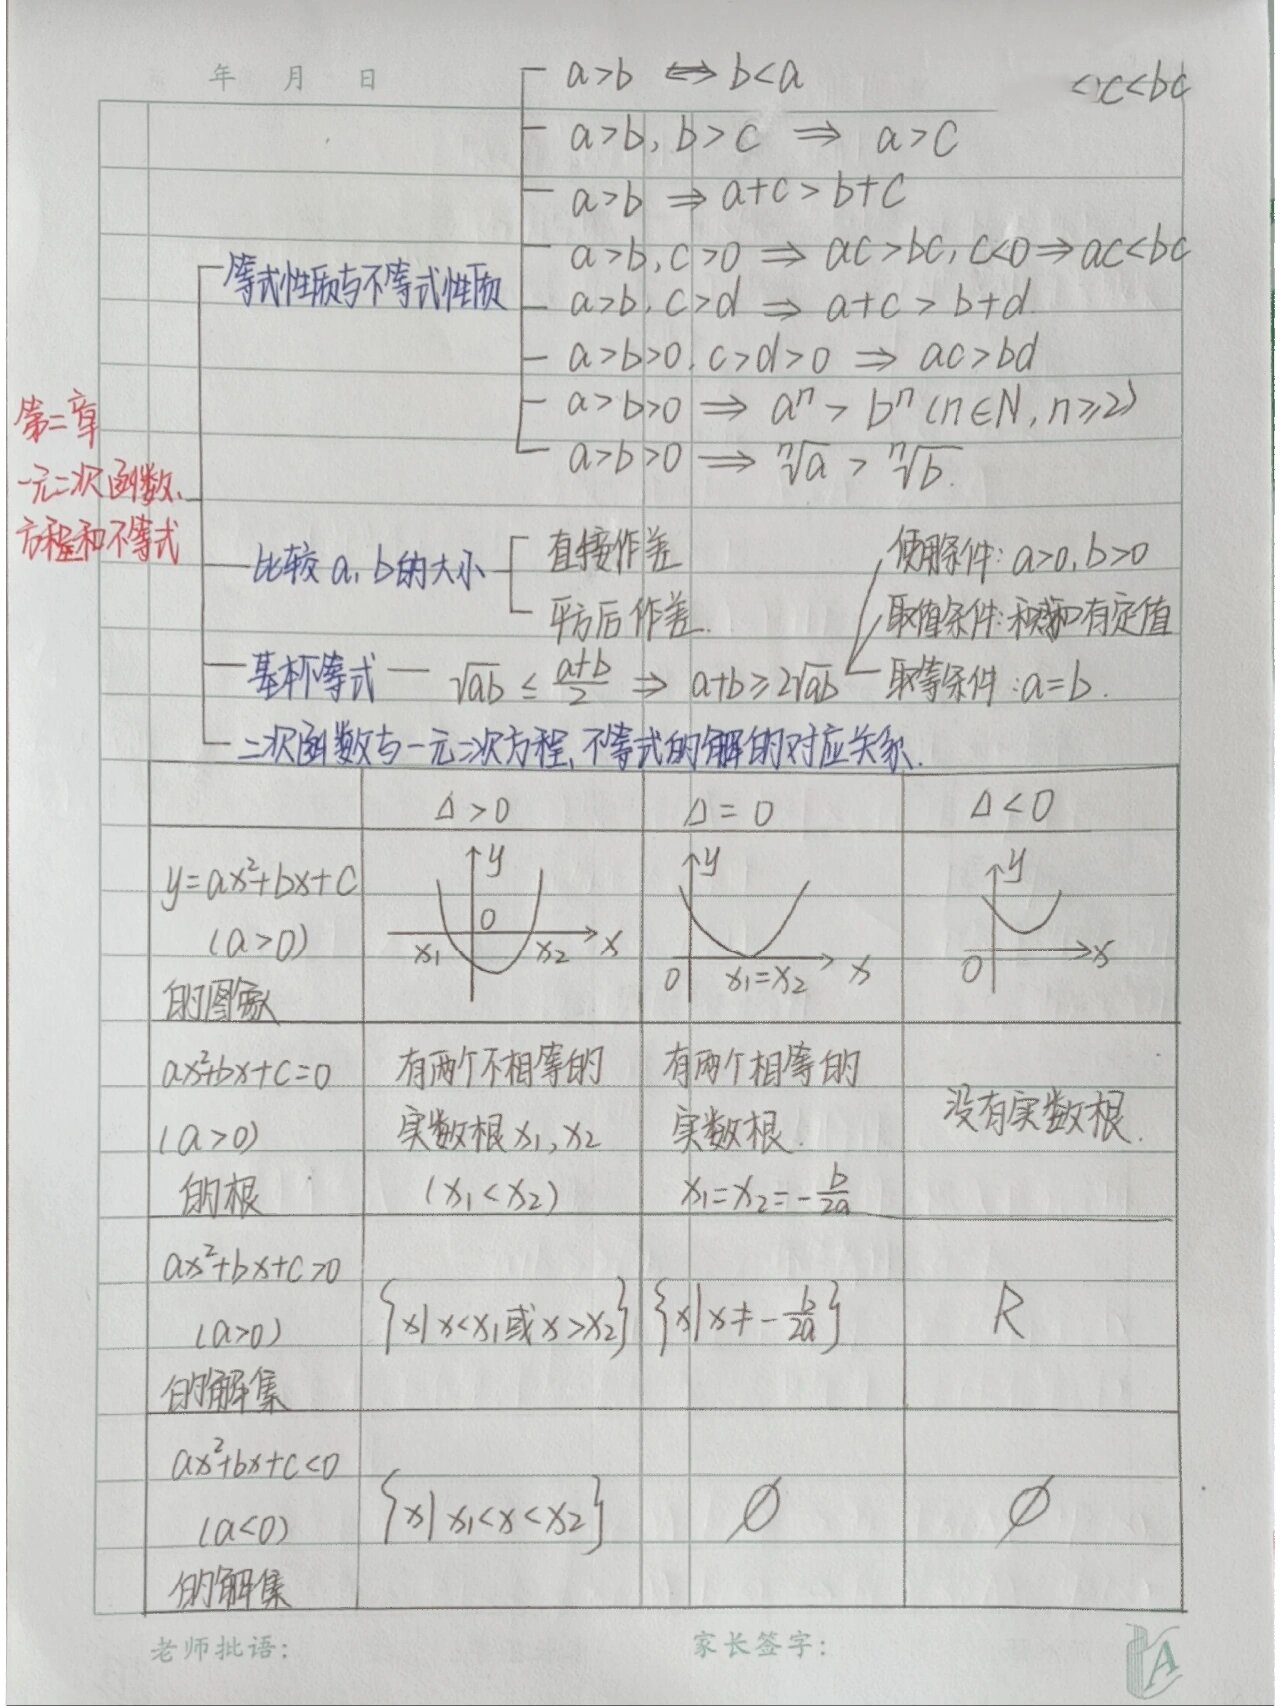 年 月 日
a>b ⇔ b<a
<c<bc
a>b, b>c ⇒ a>c
a>b ⇒ a+c>b+c
a>b, c>0 ⇒ ac>bc, c<0⇒ac<bc
等式性质与不等式性质
a>b, c>d ⇒ a+c>b+d
a>b>0, c>d>0 ⇒ ac>bd
a>b>0 ⇒ aⁿ>bⁿ(n∈N, n≥2)
a>b>0 ⇒ ⁿ√a > ⁿ√b.
第二章
一元二次函数、
方程和不等式
比较a,b的大小
直接作差
平方后作差.
基本不等式 — √ab ≤ (a+b)/2 ⇒ a+b≥2√ab
使用条件:a>0,b>0
取值条件:积和有定值
取等条件:a=b.
二次函数与一元二次方程、不等式的解的对应关系.
Δ>0 Δ=0 Δ<0
y=ax²+bx+c
(a>0)
的图象
y O x₁ x₂ x
y O x₁=x₂ x
y O x
ax²+bx+c=0
(a>0)
的根
有两个不相等的
实数根x₁,x₂
(x₁<x₂)
有两个相等的
实数根.
x₁=x₂=-b/2a
没有实数根.
ax²+bx+c>0
(a>0)
的解集
{x|x<x₁或x>x₂} {x|x≠-b/2a} R
ax²+bx+c<0
(a<0)
的解集
{x|x₁<x<x₂} ∅ ∅
老师批语: 家长签字:
A